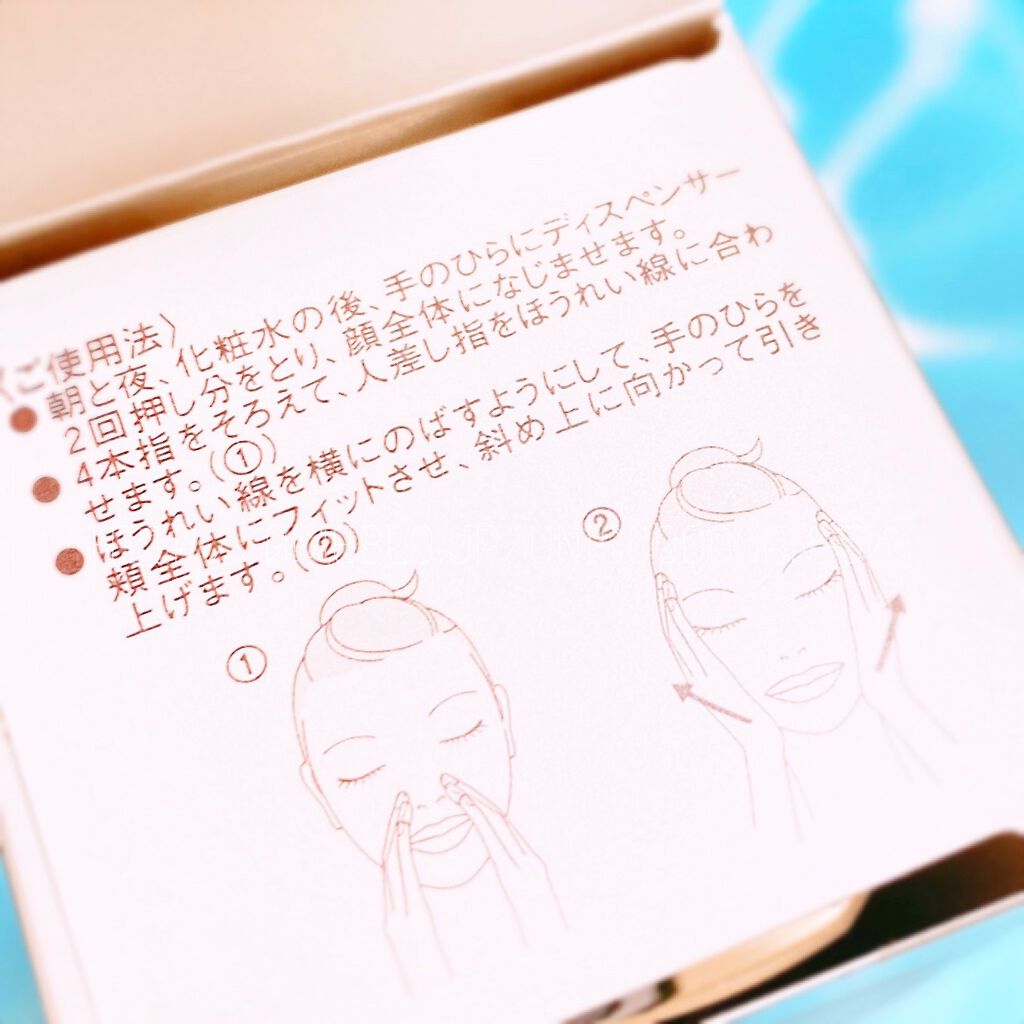 〈ご使用法〉
●朝と夜、化粧水の後、手のひらにディスペンサー
2回押し分をとり、顔全体になじませます。
●4本指をそろえて、人差し指をほうれい線に合わ
せます。(①)
●ほうれい線を横にのばすようにして、手のひらを
頬全体にフィットさせ、斜め上に向かって引き
上げます。(②)
①
②